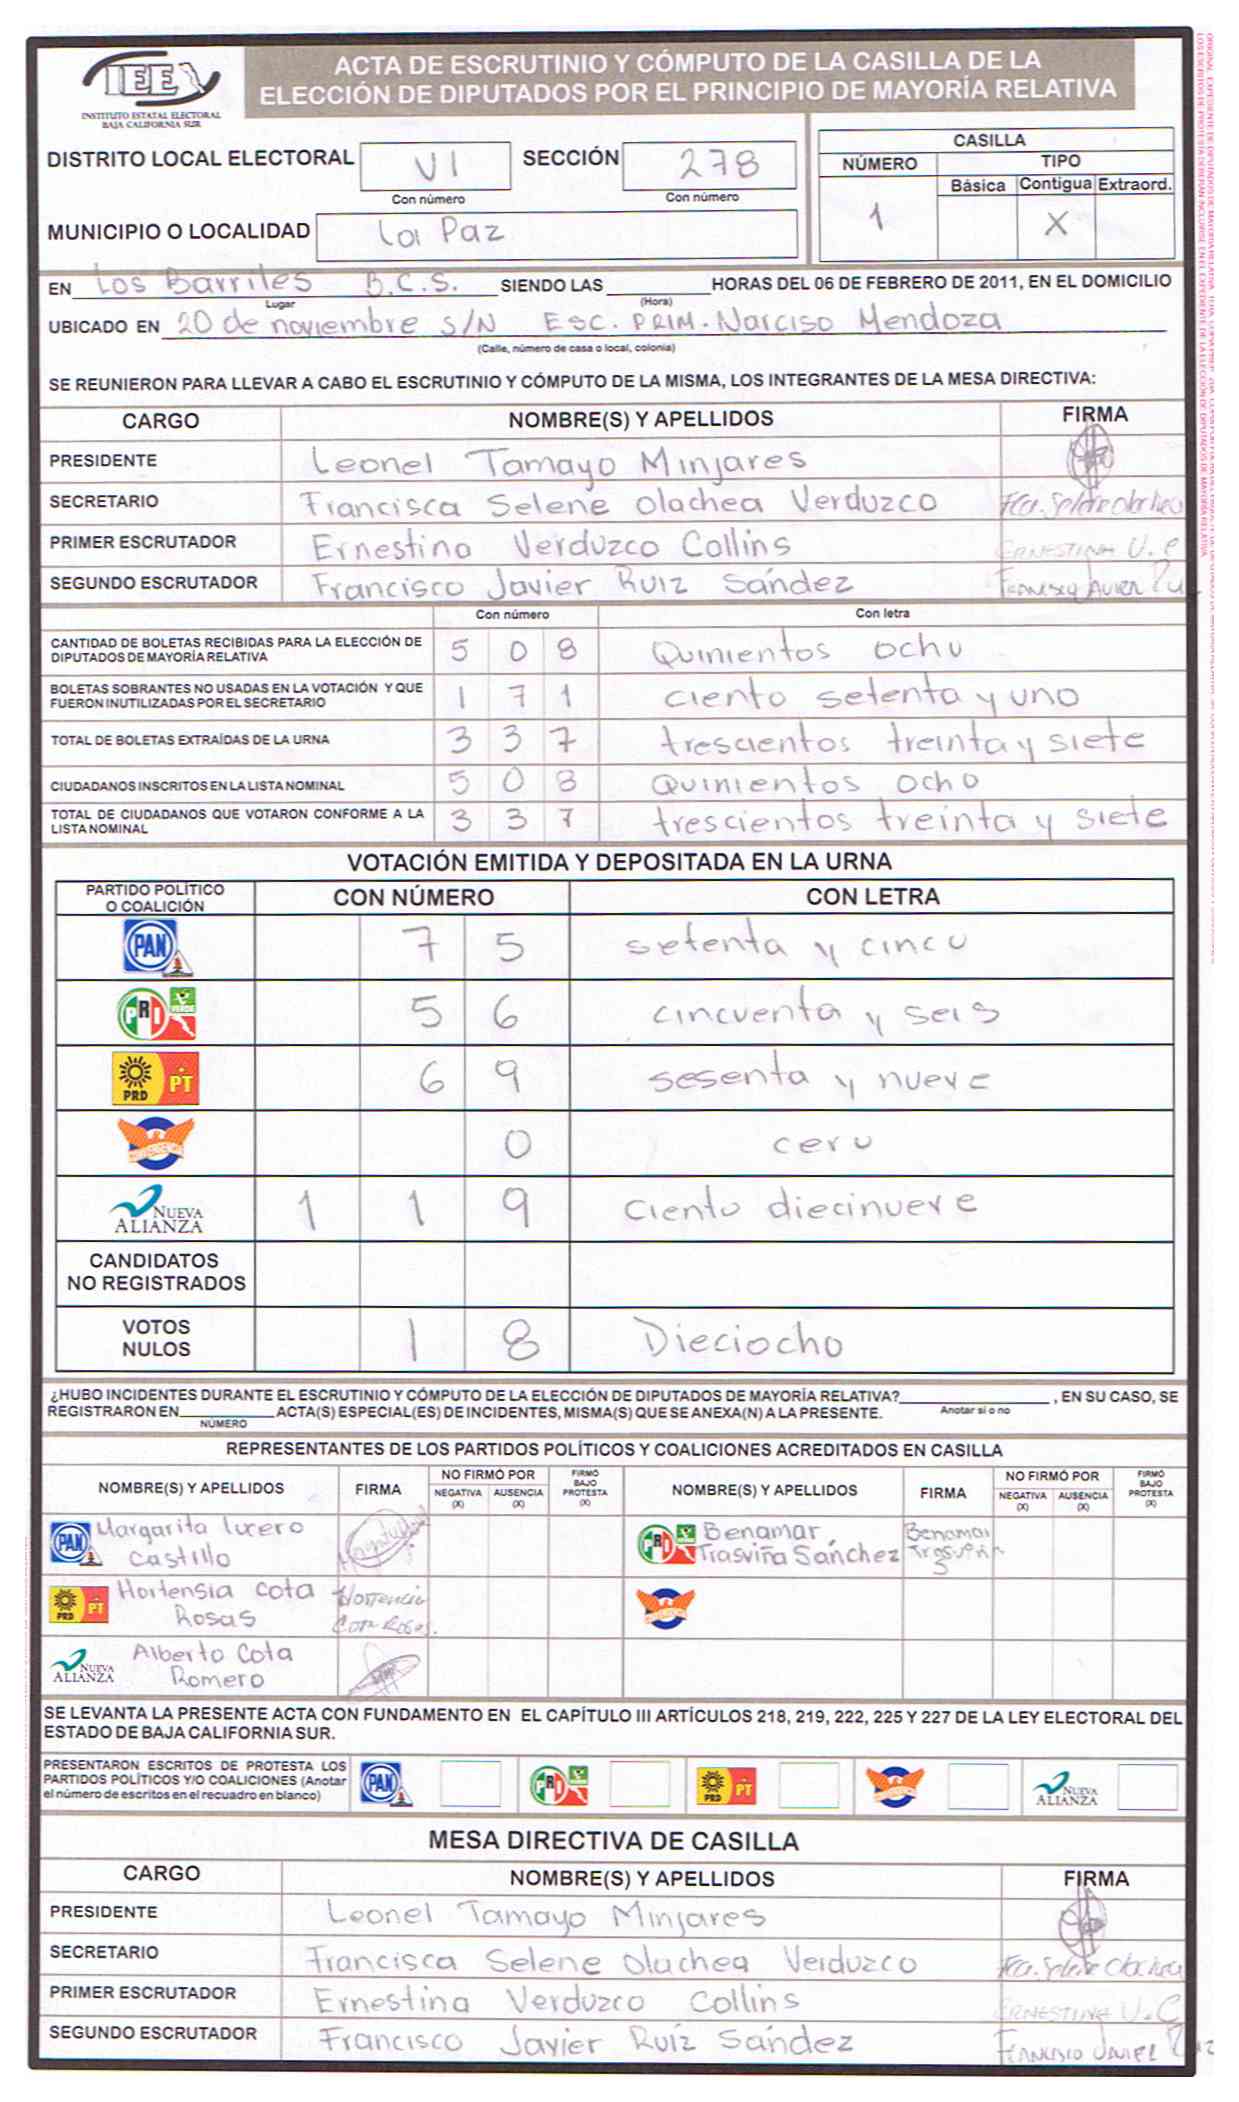 IEE
INSTITUTO ESTATAL ELECTORAL
BAJA CALIFORNIA SUR
ACTA DE ESCRUTINIO Y CÓMPUTO DE LA CASILLA DE LA
ELECCIÓN DE DIPUTADOS POR EL PRINCIPIO DE MAYORÍA RELATIVA
DISTRITO LOCAL ELECTORAL VI SECCIÓN 278
Con número Con número
MUNICIPIO O LOCALIDAD La Paz
CASILLA
NÚMERO TIPO
Básica Contigua Extraord.
1 X
EN Los Barriles B.C.S. SIENDO LAS HORAS DEL 06 DE FEBRERO DE 2011, EN EL DOMICILIO
Lugar (Hora)
UBICADO EN 20 de noviembre S/N ESC. PRIM. Narciso Mendoza
(Calle, número de casa o local, colonia)
SE REUNIERON PARA LLEVAR A CABO EL ESCRUTINIO Y CÓMPUTO DE LA MISMA, LOS INTEGRANTES DE LA MESA DIRECTIVA:
CARGO NOMBRE(S) Y APELLIDOS FIRMA
PRESIDENTE Leonel Tamayo Minjares
SECRETARIO Francisca Selene Olachea Verduzco
PRIMER ESCRUTADOR Ernestina Verduzco Collins ERNESTINA V. C
SEGUNDO ESCRUTADOR Francisco Javier Ruiz Sández
Con número Con letra
CANTIDAD DE BOLETAS RECIBIDAS PARA LA ELECCIÓN DE
DIPUTADOS DE MAYORÍA RELATIVA 5 0 8 Quinientos ocho
BOLETAS SOBRANTES NO USADAS EN LA VOTACIÓN Y QUE
FUERON INUTILIZADAS POR EL SECRETARIO 1 7 1 ciento setenta y uno
TOTAL DE BOLETAS EXTRAÍDAS DE LA URNA 3 3 7 trescientos treinta y siete
CIUDADANOS INSCRITOS EN LA LISTA NOMINAL 5 0 8 Quinientos ocho
TOTAL DE CIUDADANOS QUE VOTARON CONFORME A LA
LISTA NOMINAL 3 3 7 trescientos treinta y siete
VOTACIÓN EMITIDA Y DEPOSITADA EN LA URNA
PARTIDO POLÍTICO
O COALICIÓN CON NÚMERO CON LETRA
PAN 7 5 setenta y cinco
PRI VERDE 5 6 cincuenta y seis
PRD PT 6 9 sesenta y nueve
0 cero
NUEVA ALIANZA 1 1 9 ciento diecinueve
CANDIDATOS
NO REGISTRADOS
VOTOS
NULOS 1 8 Dieciocho
¿HUBO INCIDENTES DURANTE EL ESCRUTINIO Y CÓMPUTO DE LA ELECCIÓN DE DIPUTADOS DE MAYORÍA RELATIVA? , EN SU CASO, SE
Anotar si o no
REGISTRARON EN ACTA(S) ESPECIAL(ES) DE INCIDENTES, MISMA(S) QUE SE ANEXA(N) A LA PRESENTE.
NÚMERO
REPRESENTANTES DE LOS PARTIDOS POLÍTICOS Y COALICIONES ACREDITADOS EN CASILLA
NOMBRE(S) Y APELLIDOS FIRMA NO FIRMÓ POR NEGATIVA (X) AUSENCIA (X) FIRMÓ BAJO PROTESTA (X) NOMBRE(S) Y APELLIDOS FIRMA NO FIRMÓ POR NEGATIVA (X) AUSENCIA (X) FIRMÓ BAJO PROTESTA (X)
PAN Margarita Lucero
Castillo
PRI VERDE Benamar
Trasviña Sánchez
Benamar
Trasviña
S
PRD PT Hortensia Cota
Rosas
Hortencia
Cota Rosas.
NUEVA ALIANZA Alberto Cota
Romero
SE LEVANTA LA PRESENTE ACTA CON FUNDAMENTO EN EL CAPÍTULO III ARTÍCULOS 218, 219, 222, 225 Y 227 DE LA LEY ELECTORAL DEL
ESTADO DE BAJA CALIFORNIA SUR.
PRESENTARON ESCRITOS DE PROTESTA LOS
PARTIDOS POLÍTICOS Y/O COALICIONES (Anotar
el número de escritos en el recuadro en blanco)
PAN PRI VERDE PRD PT NUEVA ALIANZA
MESA DIRECTIVA DE CASILLA
CARGO NOMBRE(S) Y APELLIDOS FIRMA
PRESIDENTE Leonel Tamayo Minjares
SECRETARIO Francisca Selene Olachea Verduzco
PRIMER ESCRUTADOR Ernestina Verduzco Collins ERNESTINA V. C
SEGUNDO ESCRUTADOR Francisco Javier Ruíz Sández